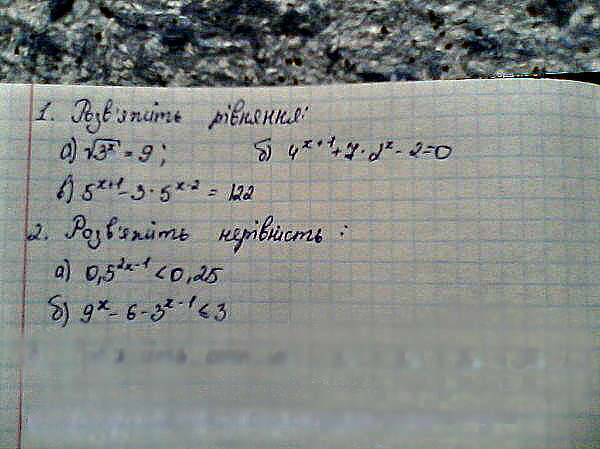 1. Розв'яжіть рівняння:
а) √3ˣ = 9; б) 4ˣ⁺¹ + 7 · 2ˣ - 2 = 0
в) 5ˣ⁺¹ - 3 · 5ˣ⁻² = 122
2. Розв'яжіть нерівність:
а) 0,5²ˣ⁻¹ < 0,25
б) 9ˣ - 6 - 3ˣ⁻¹ < 3